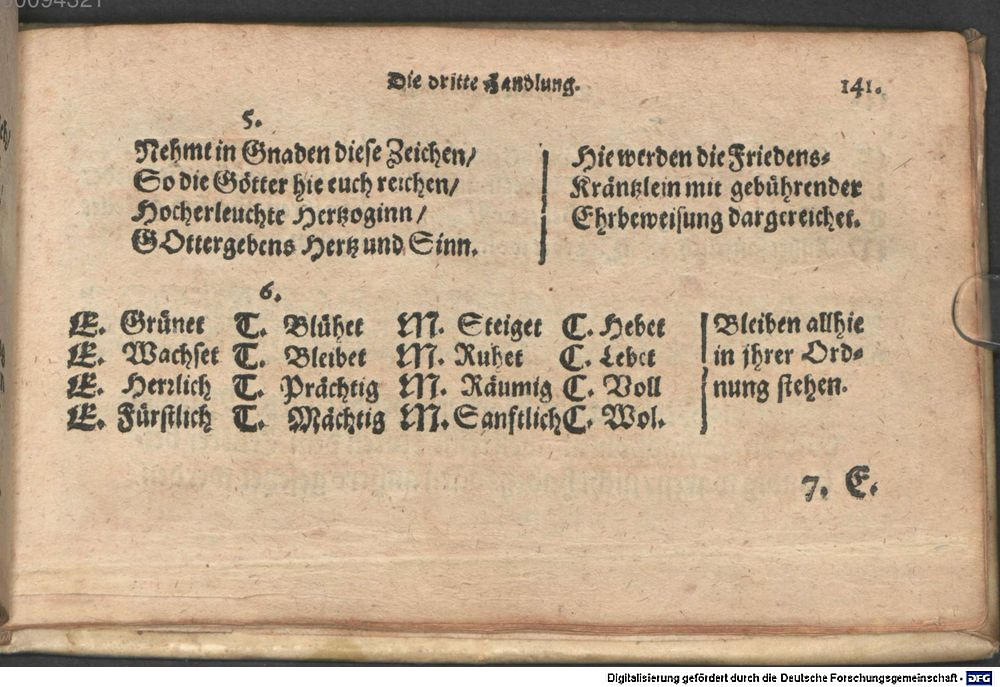 Die dritte Handlung.
141.
5.
Nehmt in Gnaden diese Zeichen/
So die Götter hie euch reichen/
Hocherleuchte Hertzoginn/
GOttergebens Hertz und Sinn.
Hie werden die Friedens-
Kräntzlein mit gebührender
Ehrbeweisung dargereichet.
6.
E. Grünet T. Blühet M. Steiget C. Hebet
E. Wachset T. Bleibet M. Ruhet C. Lebet
E. Herrlich T. Prächtig M. Räumig C. Voll
E. Fürstlich T. Mächtig M. Sanftlich C. Wol.
Bleiben allhie
in jhrer Ord-
nung stehen.
7. E.
Digitalisierung gefördert durch die Deutsche Forschungsgemeinschaft - DFG